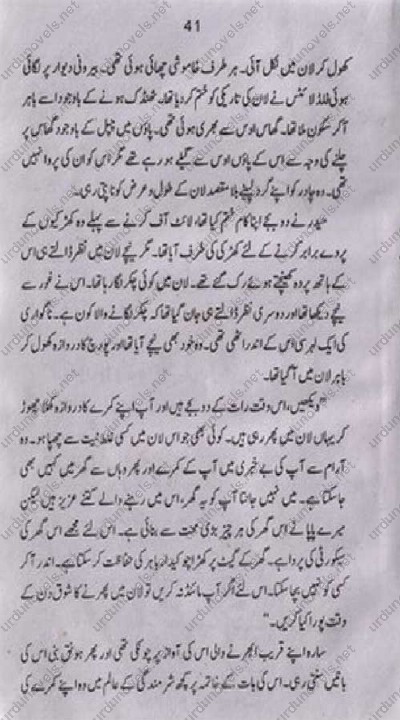 41
کھول کر لان میں نکل آئی۔ ہر طرف خاموشی چھائی ہوئی تھی۔ بیرونی دیوار پر لگائی
ہوئی فلڈ لائٹس نے لان کی تاریکی کو ختم کر دیا تھا۔ ٹھنڈک ہونے کے باوجود اسے باہر
آکر سکون ملا تھا۔ گھاس اوس سے بھری ہوئی تھی۔ پاؤں میں چپل کے باوجود گھاس پر
چلنے کی وجہ سے اس کے پاؤں اوس سے گیلے ہو رہے تھے مگر اس کو ان کی پروا نہیں
تھی۔ وہ چادر کو اپنے گرد لپیٹے بلا مقصد لان کے طول و عرض کو ناپتی رہی۔
حیدر نے دو بجے اپنا کام ختم کیا تھا، لائٹ آف کرنے سے پہلے وہ کھڑکیوں کے
پردے برابر کرنے کے لئے کھڑکی کی طرف آیا تھا۔ مگر نیچے لان میں نظر ڈالتے ہی اس
کے ہاتھ پردہ کھینچتے ہوئے رک گئے تھے۔ لان میں کوئی چکر لگا رہا تھا۔ اس نے غور سے
نیچے دیکھا تھا اور دوسری نظر ڈالتے ہی جان گیا تھا کہ چکر لگانے والا کون ہے۔ ناگواری
کی ایک لہر سی اس کے اندر اٹھی تھی۔ وہ خود بھی نیچے آیا تھا اور پورچ کا دروازہ کھول کر
باہر لان میں آگیا تھا۔
"دیکھیں، اس وقت رات کے دو بجے ہیں اور آپ اپنے کمرے کا دروازہ کھلا چھوڑ
کر یہاں لان میں پھر رہی ہیں۔ کوئی بھی جو اس لان میں کسی غلط نیت سے چھپا ہو۔ وہ
آرام سے آپ کی بے خبری میں آپ کے کمرے اور پھر وہاں سے گھر میں کہیں بھی
جا سکتا ہے۔ میں نہیں جانتا آپ کو یہ گھر، اس میں رہنے والے کتنے عزیز ہیں لیکن
میرے پاپا نے اس گھر کی ہر چیز بڑی محنت سے بنائی ہے۔ اس لئے مجھے اس گھر کی
سیکورٹی کی پروا ہے۔ گھر کے گیٹ پر کھڑا چوکیدار باہر کی حفاظت کر سکتا ہے۔ اندر آکر
کسی کو نہیں بچا سکتا۔ اس لئے اگر آپ مائنڈ نہ کریں تو لان میں پھرنے کا شوق دن کے
وقت پورا کیا کریں۔"
سارہ اپنے قریب ابھرنے والی اس کی آواز پر چونکی تھی اور پھر ہونق بنی اس کی
باتیں سنتی رہی۔ اس کی بات کے خاتمہ پر کچھ شرمندگی کے عالم میں وہ اپنے کمرے کی
urdunovels.net